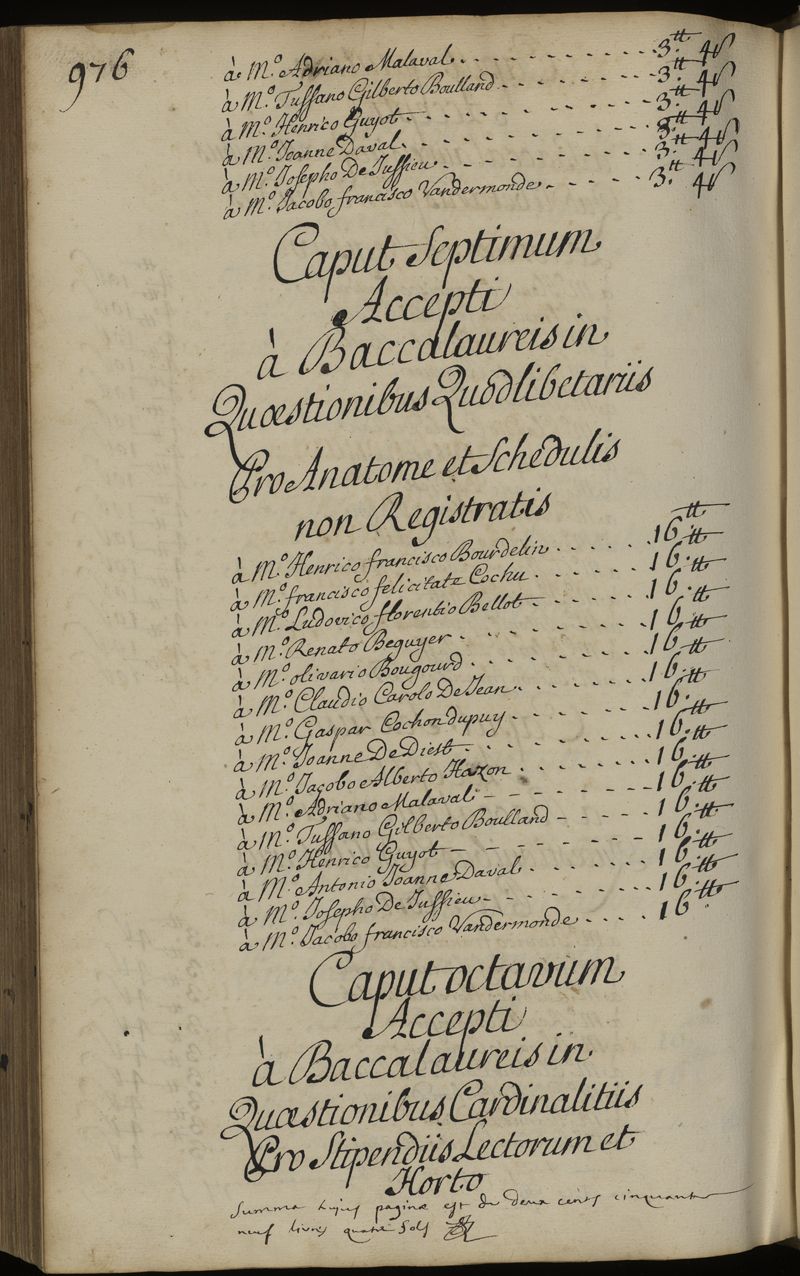 976
à M.º Adriano Malaval. . . . . . . . . . . 3.tt 4s
à M.º Tussano Gilberto Boulland . . . . . . . . . 3.tt 4s
à M.º Henrico Guyot . . . . . . . . . . . 3.tt 4s
à M.º Joanne Daval. . . . . . . . . . . 3.tt 4s
à M.º Josepho De Jussieu . . . . . . . . . . 3.tt 4s
à M.º Jacobo francisco Vandermonde . . . . . . 3.tt 4s
Caput Septimum
Accepti
à Baccalaureis in
Quæstionibus Quodlibetariis
Pro Anatome et Schedulis
non Registratis
à M.º Henrico francisco Bourdelin . . . . . . 16.tt
à M.º francisco felicitate Cochu . . . . . . 16.tt
à M.º Ludovico florentio Bellot . . . . . . 16.tt
à M.º Renato Beguyer . . . . . . . . . 16.tt
à M.º olivario Bougourd . . . . . . . . . 16.tt
à M.º Claudio Carolo De Jean . . . . . . . 16.tt
à M.º Gaspar Cochon dupuy . . . . . . . 16.tt
à M.º Joanne De Diest . . . . . . . . . 16.tt
à M.º Jacobo Alberto Hazon . . . . . . . 16.tt
à M.º Adriano Malaval - - - - - - - 16.tt
à M.º Tussano Gilberto Boulland - - - - - 16.tt
à M.º Henrico Guyot - - - - - - - - 16.tt
à M.º Antonio Joanne Daval . . . . . . . 16.tt
à M.º Josepho De Jussieu . . . . . . . . . 16.tt
à M.º Jacobo francisco Vandermonde . . . . 16.tt
Caput octavum
Accepti
à Baccalaureis in
Quæstionibus Cardinalitiis
Pro Stipendiis Lectorum et
Horto
Summa hujus paginæ est de deux cents cinquante
neuf livres quatre Sols